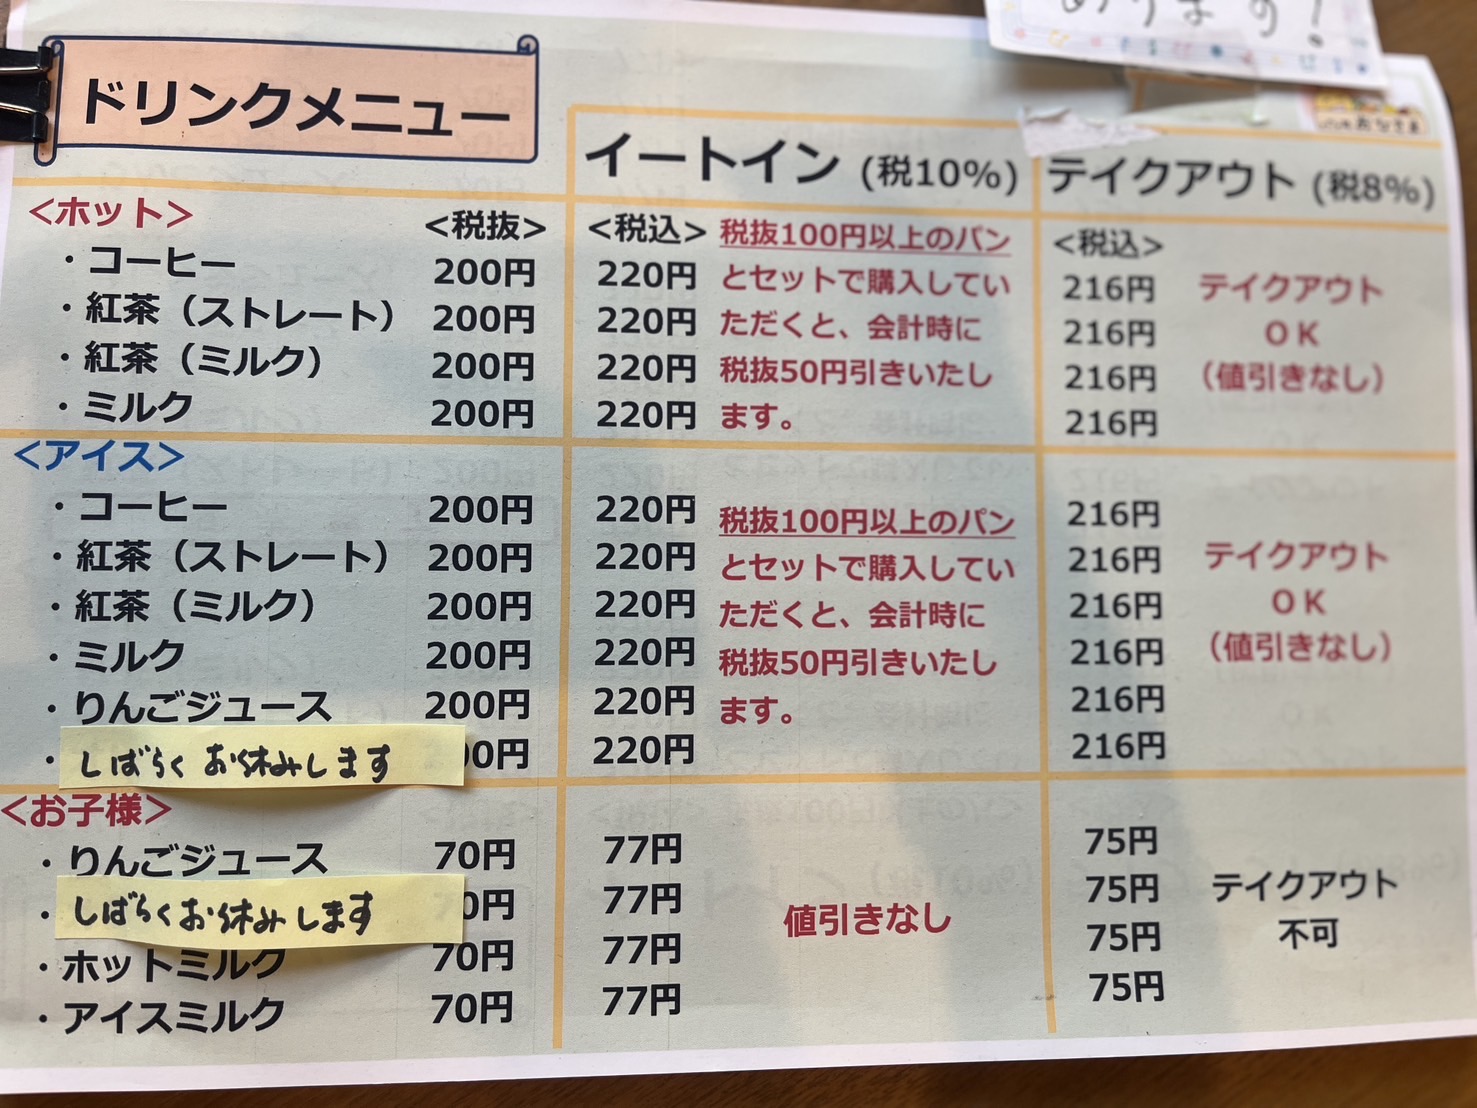 あります!
ドリンクメニュー
イートイン (税10%)
テイクアウト (税8%)
<ホット>
<税抜>
<税込>
<税込>
・コーヒー 200円 220円 216円
・紅茶（ストレート） 200円 220円 216円
・紅茶（ミルク） 200円 220円 216円
・ミルク 200円 220円 216円
税抜100円以上のパン
とセットで購入してい
ただくと、会計時に
税抜50円引きいたし
ます。
テイクアウト
ＯＫ
（値引きなし）
<アイス>
・コーヒー 200円 220円 216円
・紅茶（ストレート） 200円 220円 216円
・紅茶（ミルク） 200円 220円 216円
・ミルク 200円 220円 216円
・りんごジュース 200円 220円 216円
・しばらくお休みします 00円 220円 216円
税抜100円以上のパン
とセットで購入してい
ただくと、会計時に
税抜50円引きいたし
ます。
テイクアウト
ＯＫ
（値引きなし）
<お子様>
・りんごジュース 70円 77円 75円
・しばらくお休みします 70円 77円 75円
・ホットミルク 70円 77円 75円
・アイスミルク 70円 77円 75円
値引きなし
テイクアウト
不可